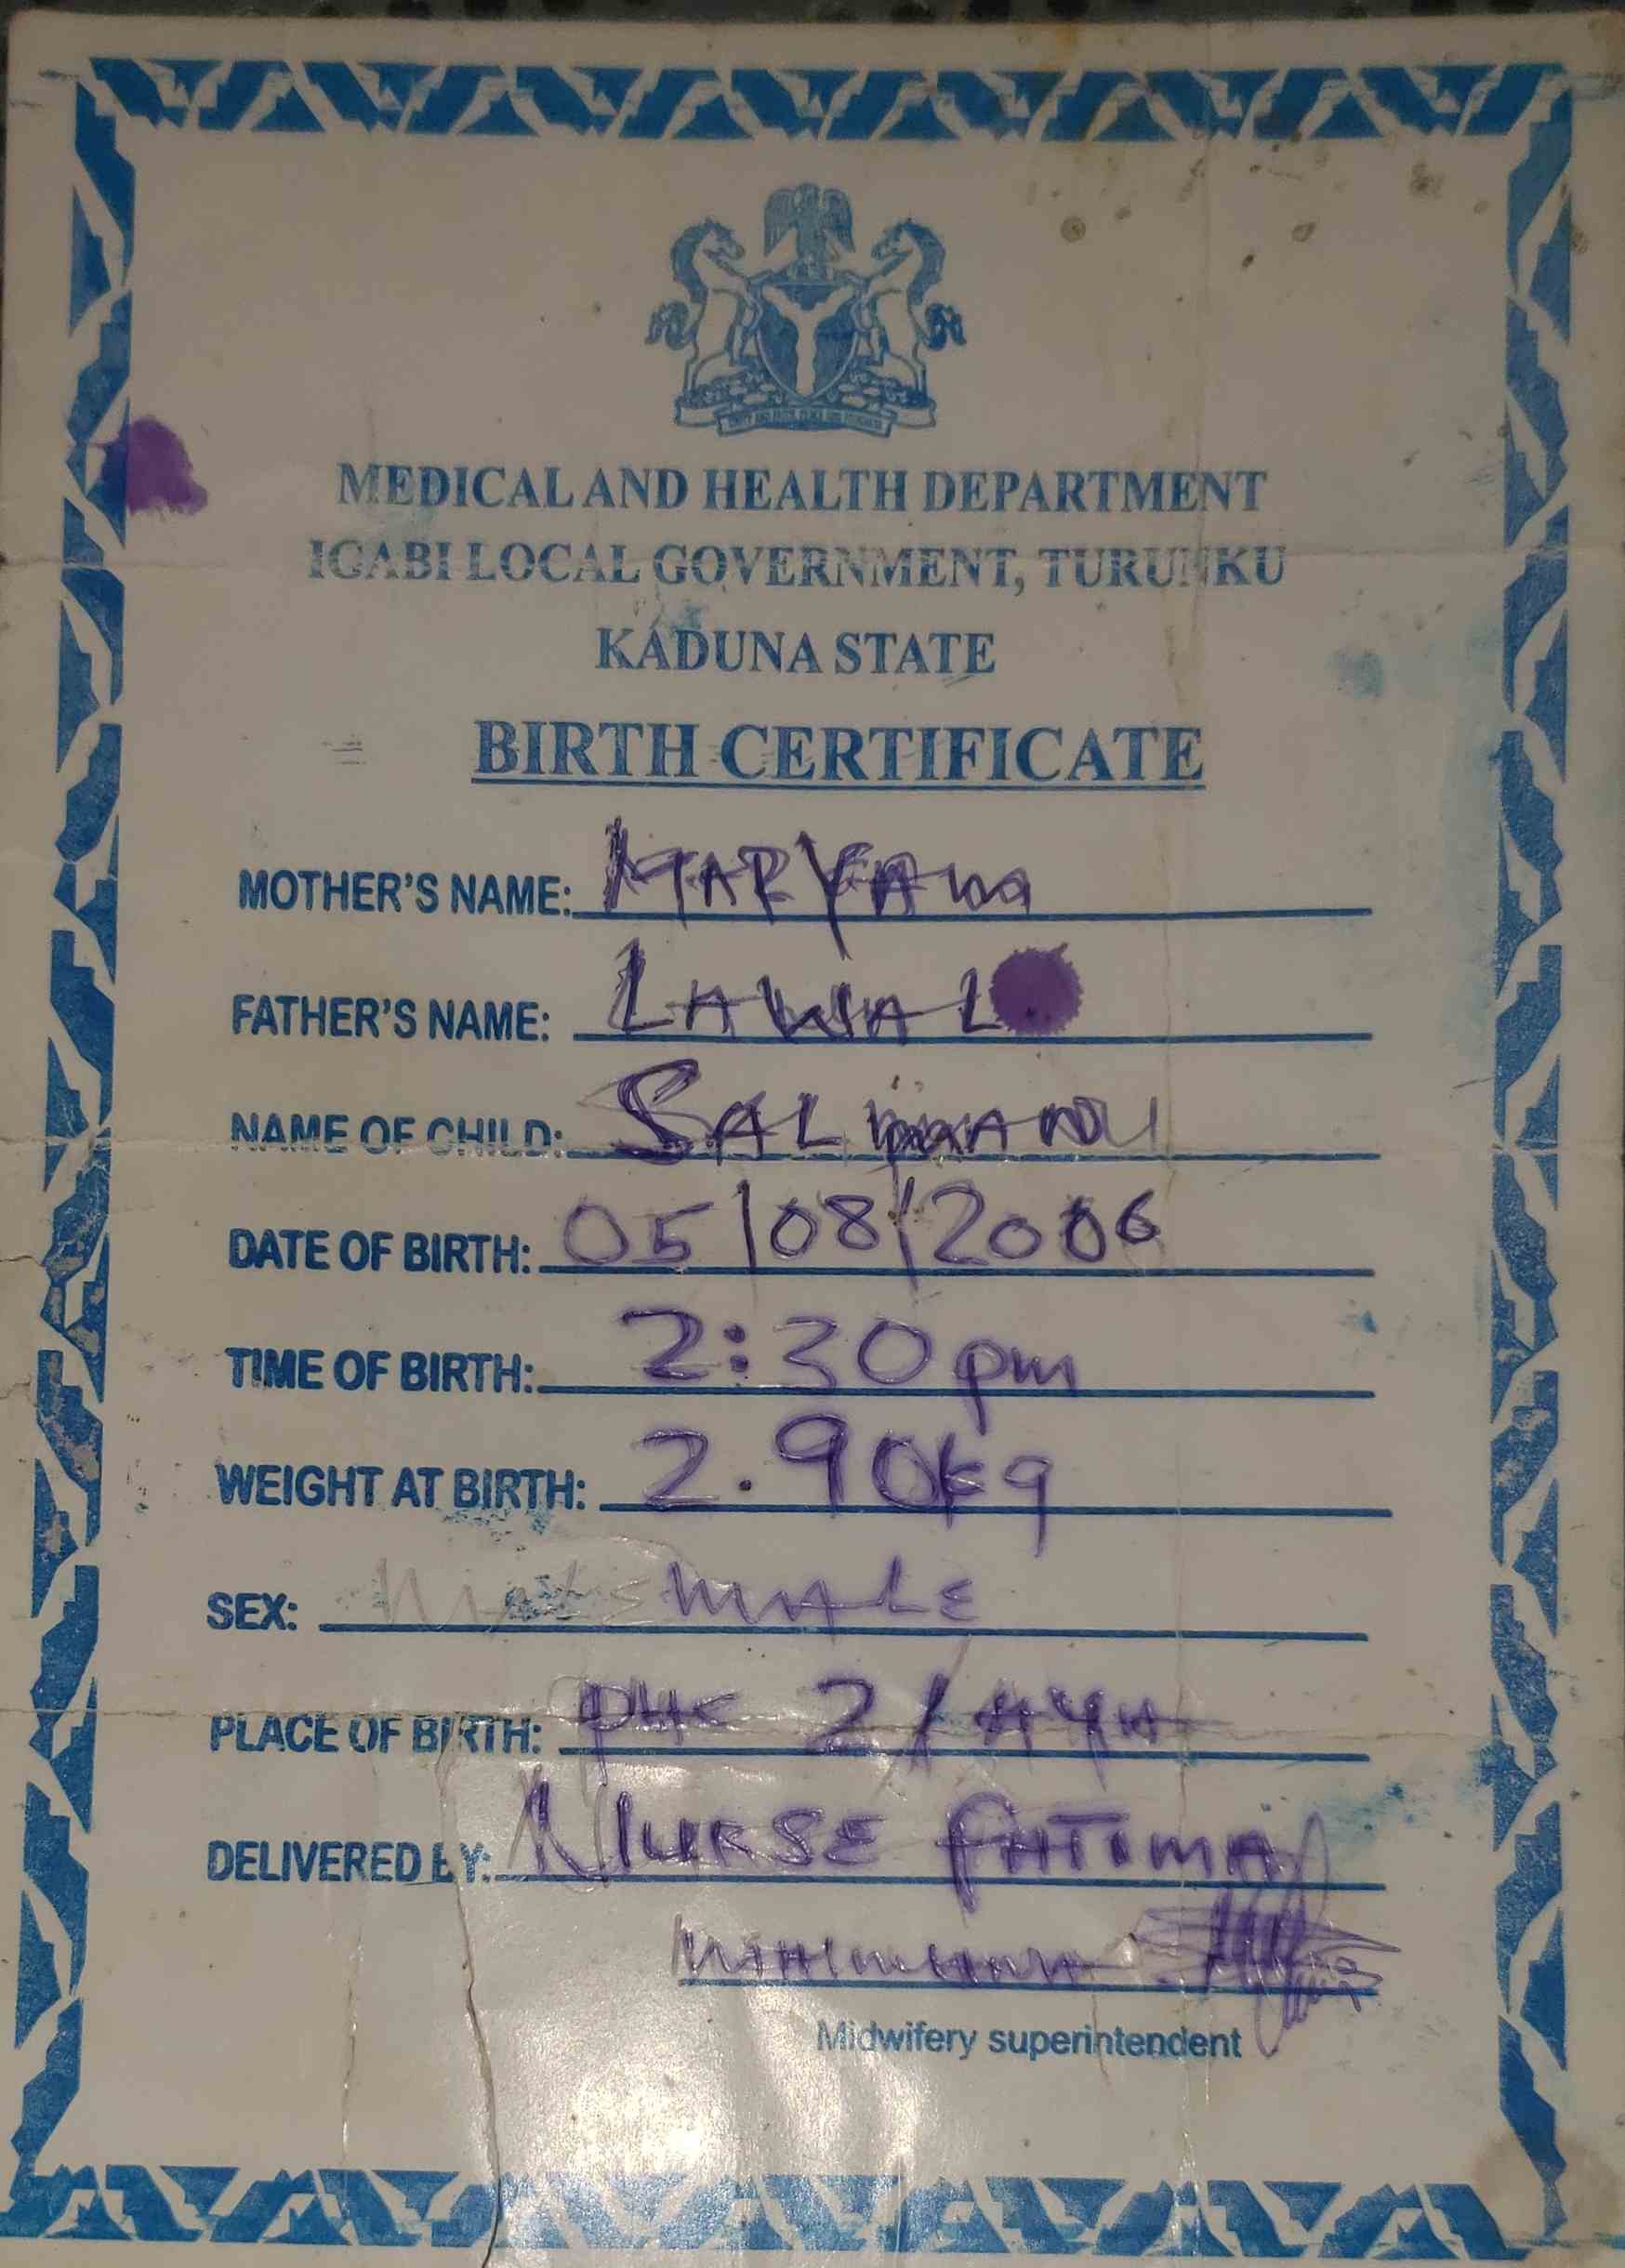 MEDICAL AND HEALTH DEPARTMENT
IGABI LOCAL GOVERNMENT, TURUNKU
KADUNA STATE
BIRTH CERTIFICATE
MOTHER'S NAME: MARYAM
FATHER'S NAME: LAWAL
NAME OF CHILD:
DATE OF BIRTH: 05/08/2006
TIME OF BIRTH: 2:30pm
WEIGHT AT BIRTH: 2.90kg
SEX: MALE
PLACE OF BIRTH: PHC 2/
DELIVERED BY: NURSE FATIMA
Midwifery superintendent